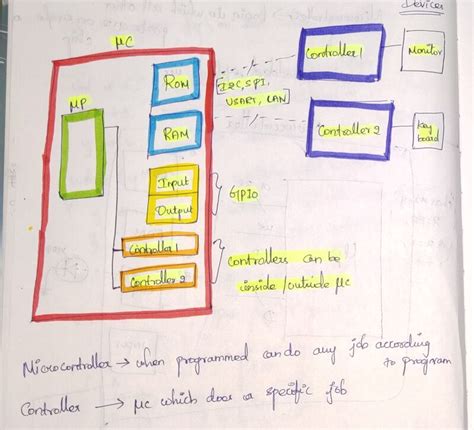 Devices
μC
μP
ROM
RAM
Input
Output
GPIO
Controller 1
Controller 2
[I2C, SPI,
USART, LAN]
Controller 1
Monitor
Controller 2
Key
board
Controllers can be
inside/outside μC
Microcontroller → when programmed can do any job according
to program
Controller → μC which does a specific job